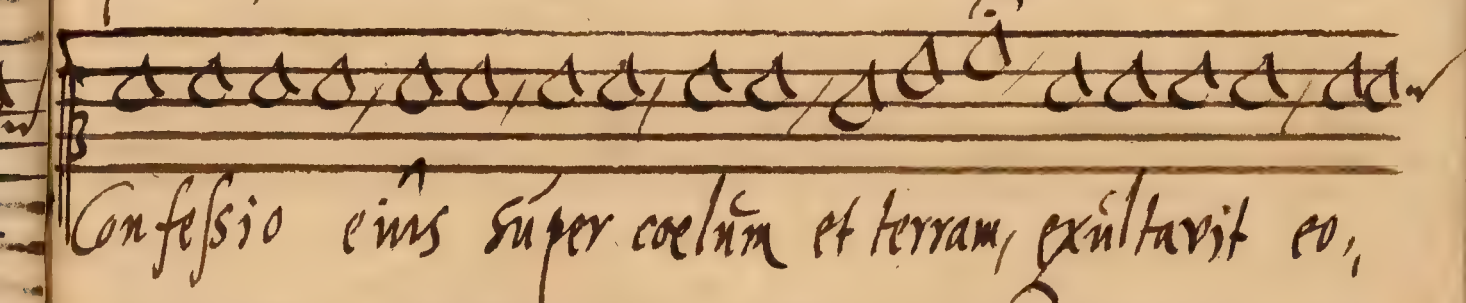 Confeſsio eius super coelũm et terram, exũltavit eo,